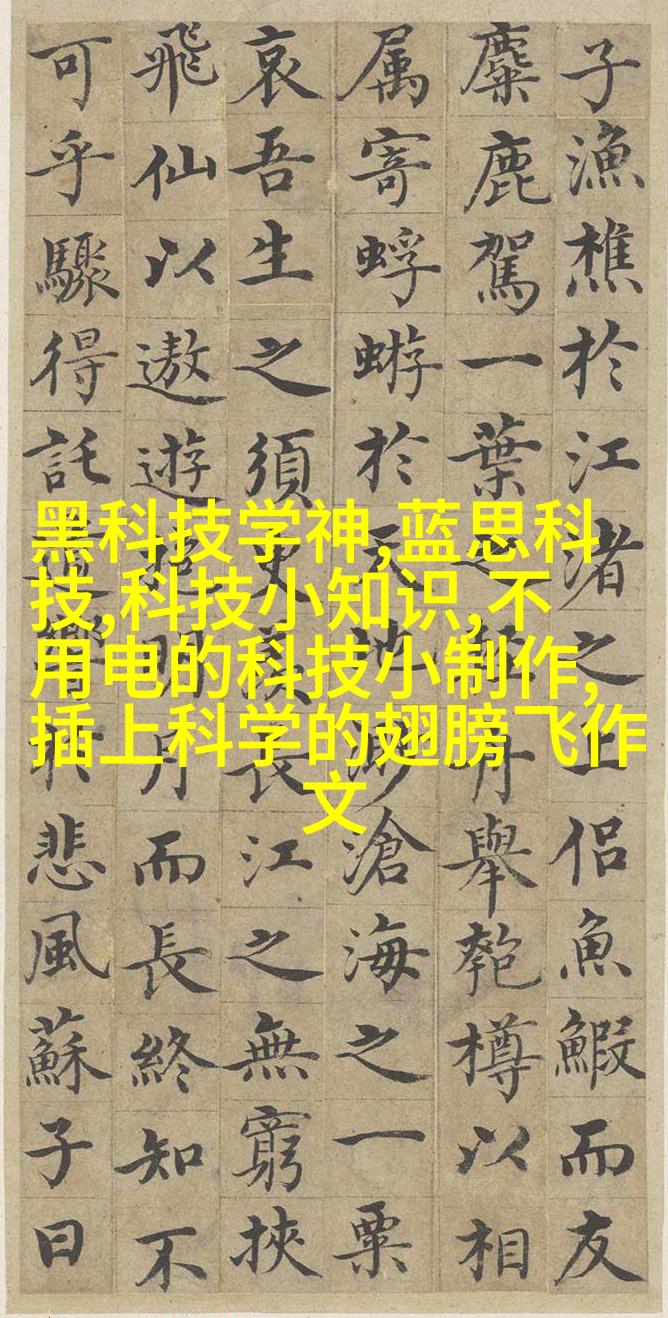 子漁樵於江渚之上侶魚鰕而友
麋鹿駕一葉之扁舟舉匏樽以相
属寄蜉蝣於天地渺滄海之一粟
哀吾生之須臾羨長江之無窮挾
飛仙以遨遊抱明月而長終知不
可乎驟得託遺響於悲風蘇子曰
黑科技学神,蓝思科
技,科技小知识,不
用电的科技小制作,
插上科学的翅膀飞作
文